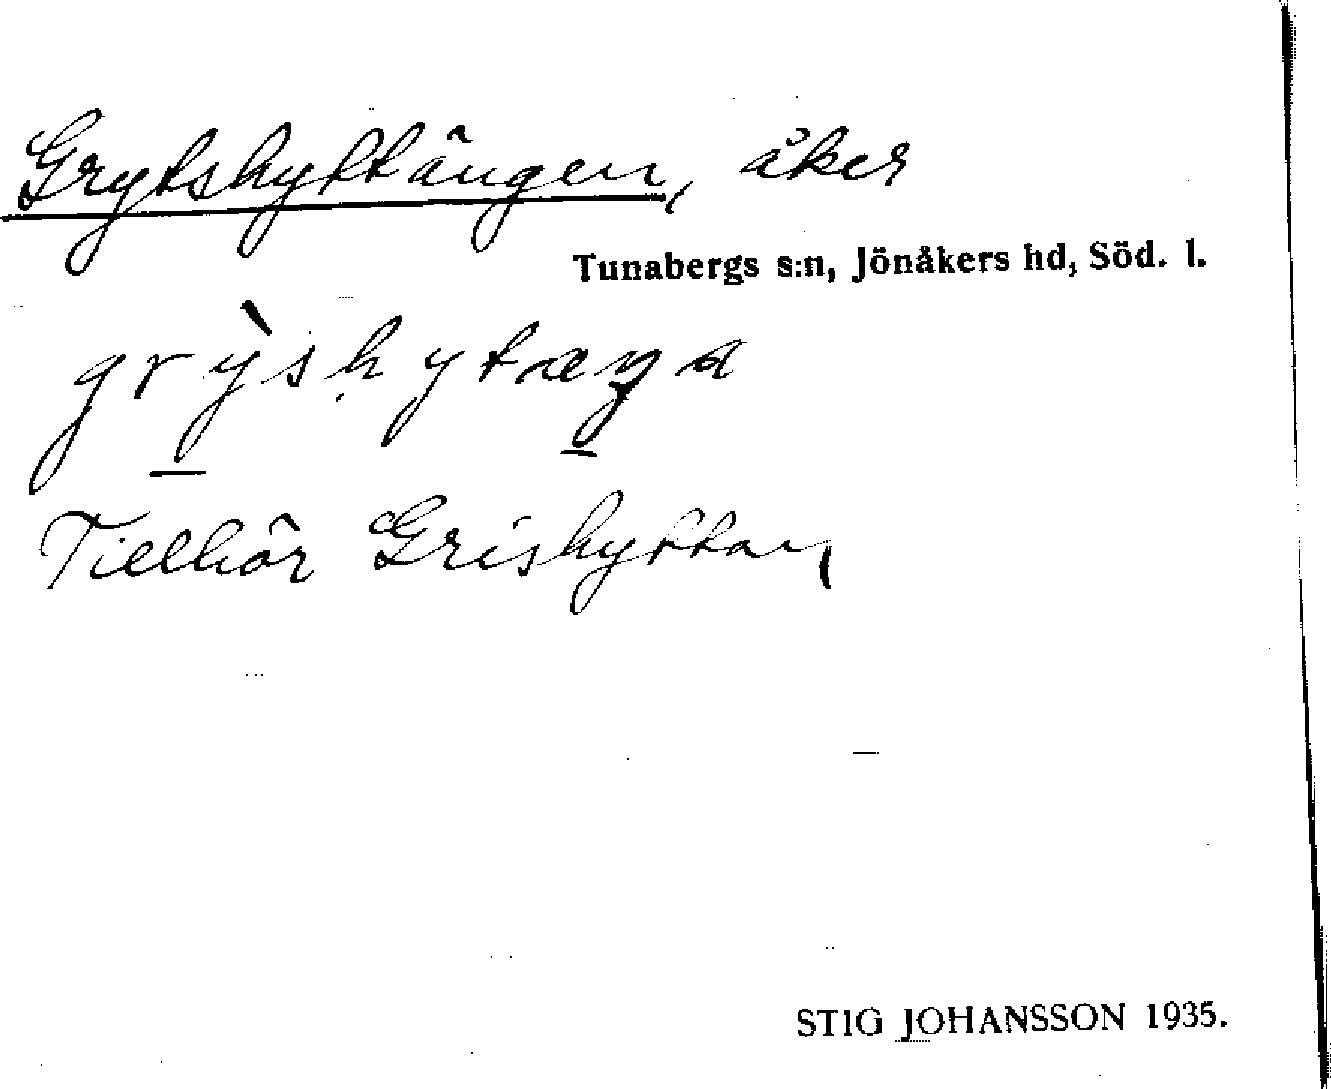 Grytshyttängen, åker
Tunabergs s:n, Jönåkers hd, Söd. l.
grỳshytæŋa
Tillhör Grishyttan
STIG JOHANSSON 1935.